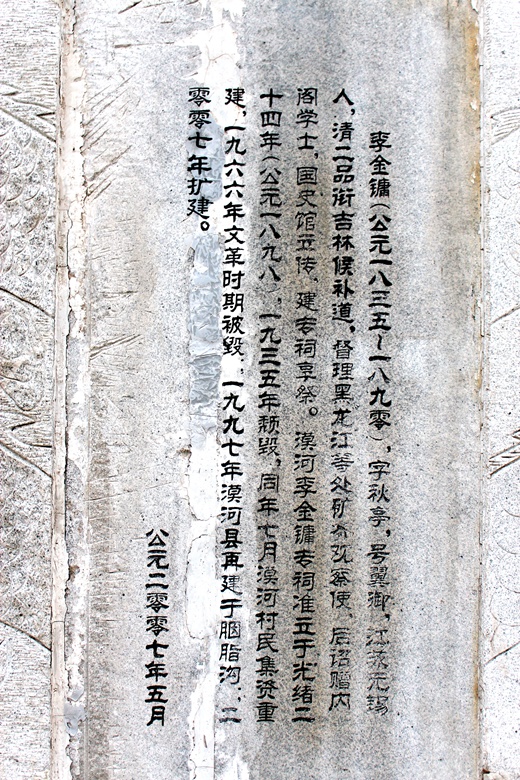 李金镛(公元一八三五~一八九零),字秋亭,号翼御,江苏无锡
人,清二品衔吉林候补道,督理黑龙江等处矿务观察使,后诏赠内
阁学士,国史馆立传,建专祠享祭。漠河李金镛专祠准立于光绪二
十四年(公元一八九八),一九三五年颓毁,同年七月漠河村民集资重
建,一九六六年文革时期被毁,一九九七年漠河县再建于胭脂沟,二
零零七年扩建。
公元二零零七年五月